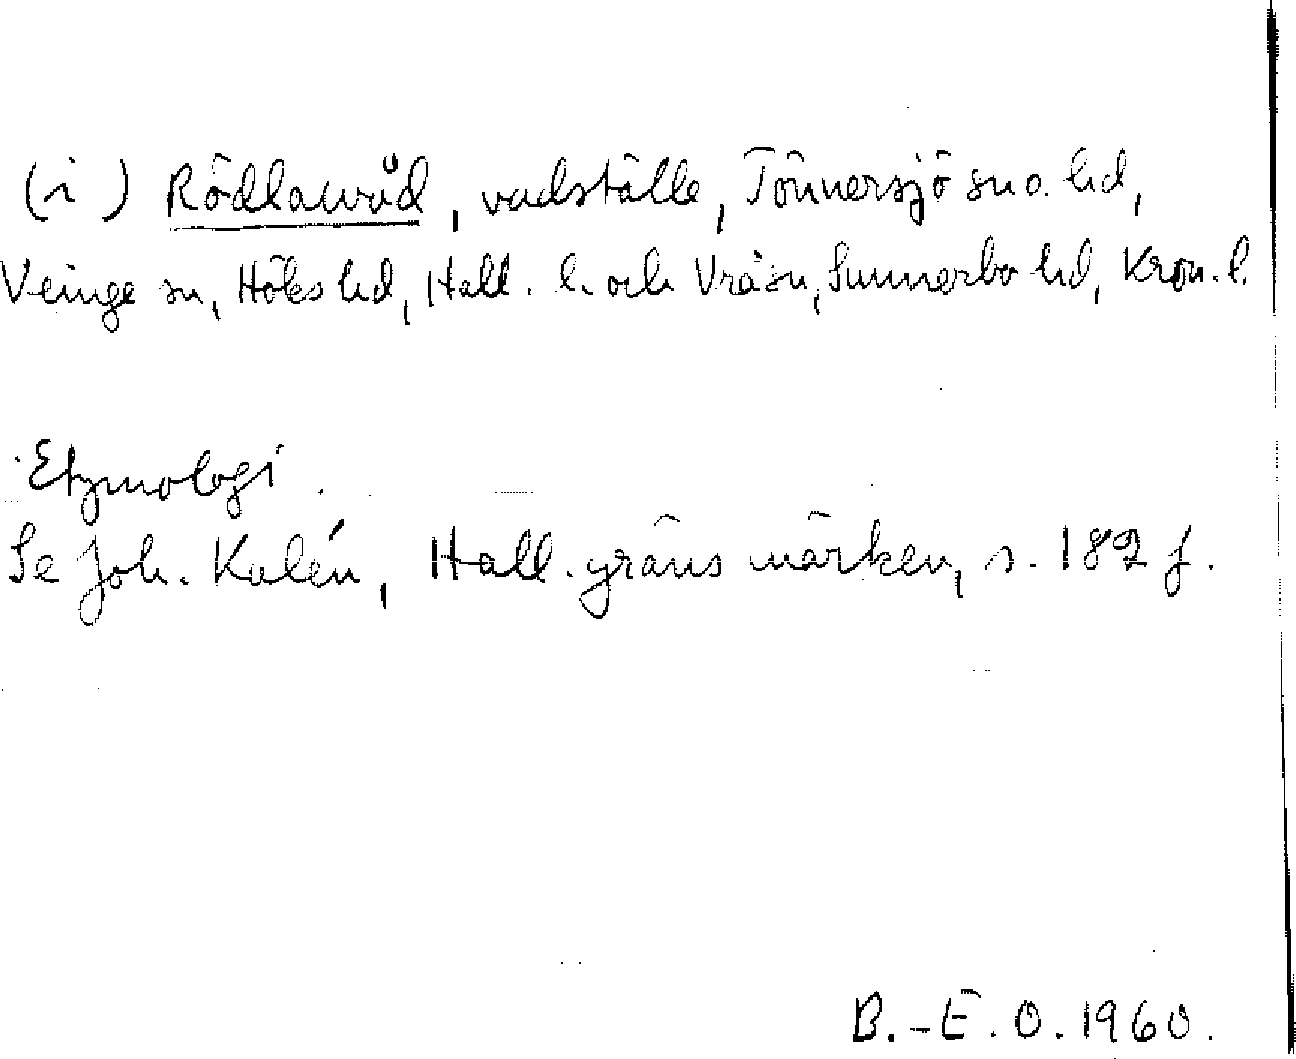 (i) Rödlawåd, vadställe, Tönnersjö sn o. hd,
Veinge sn, Höks hd, Hall. l. och Vrå sn, Sunnerbo hd, Kron. l.
Etymologi.
Se Joh. Kalén, Hall. gränsmärken, s. 182 f.
B.-E. O. 1960.